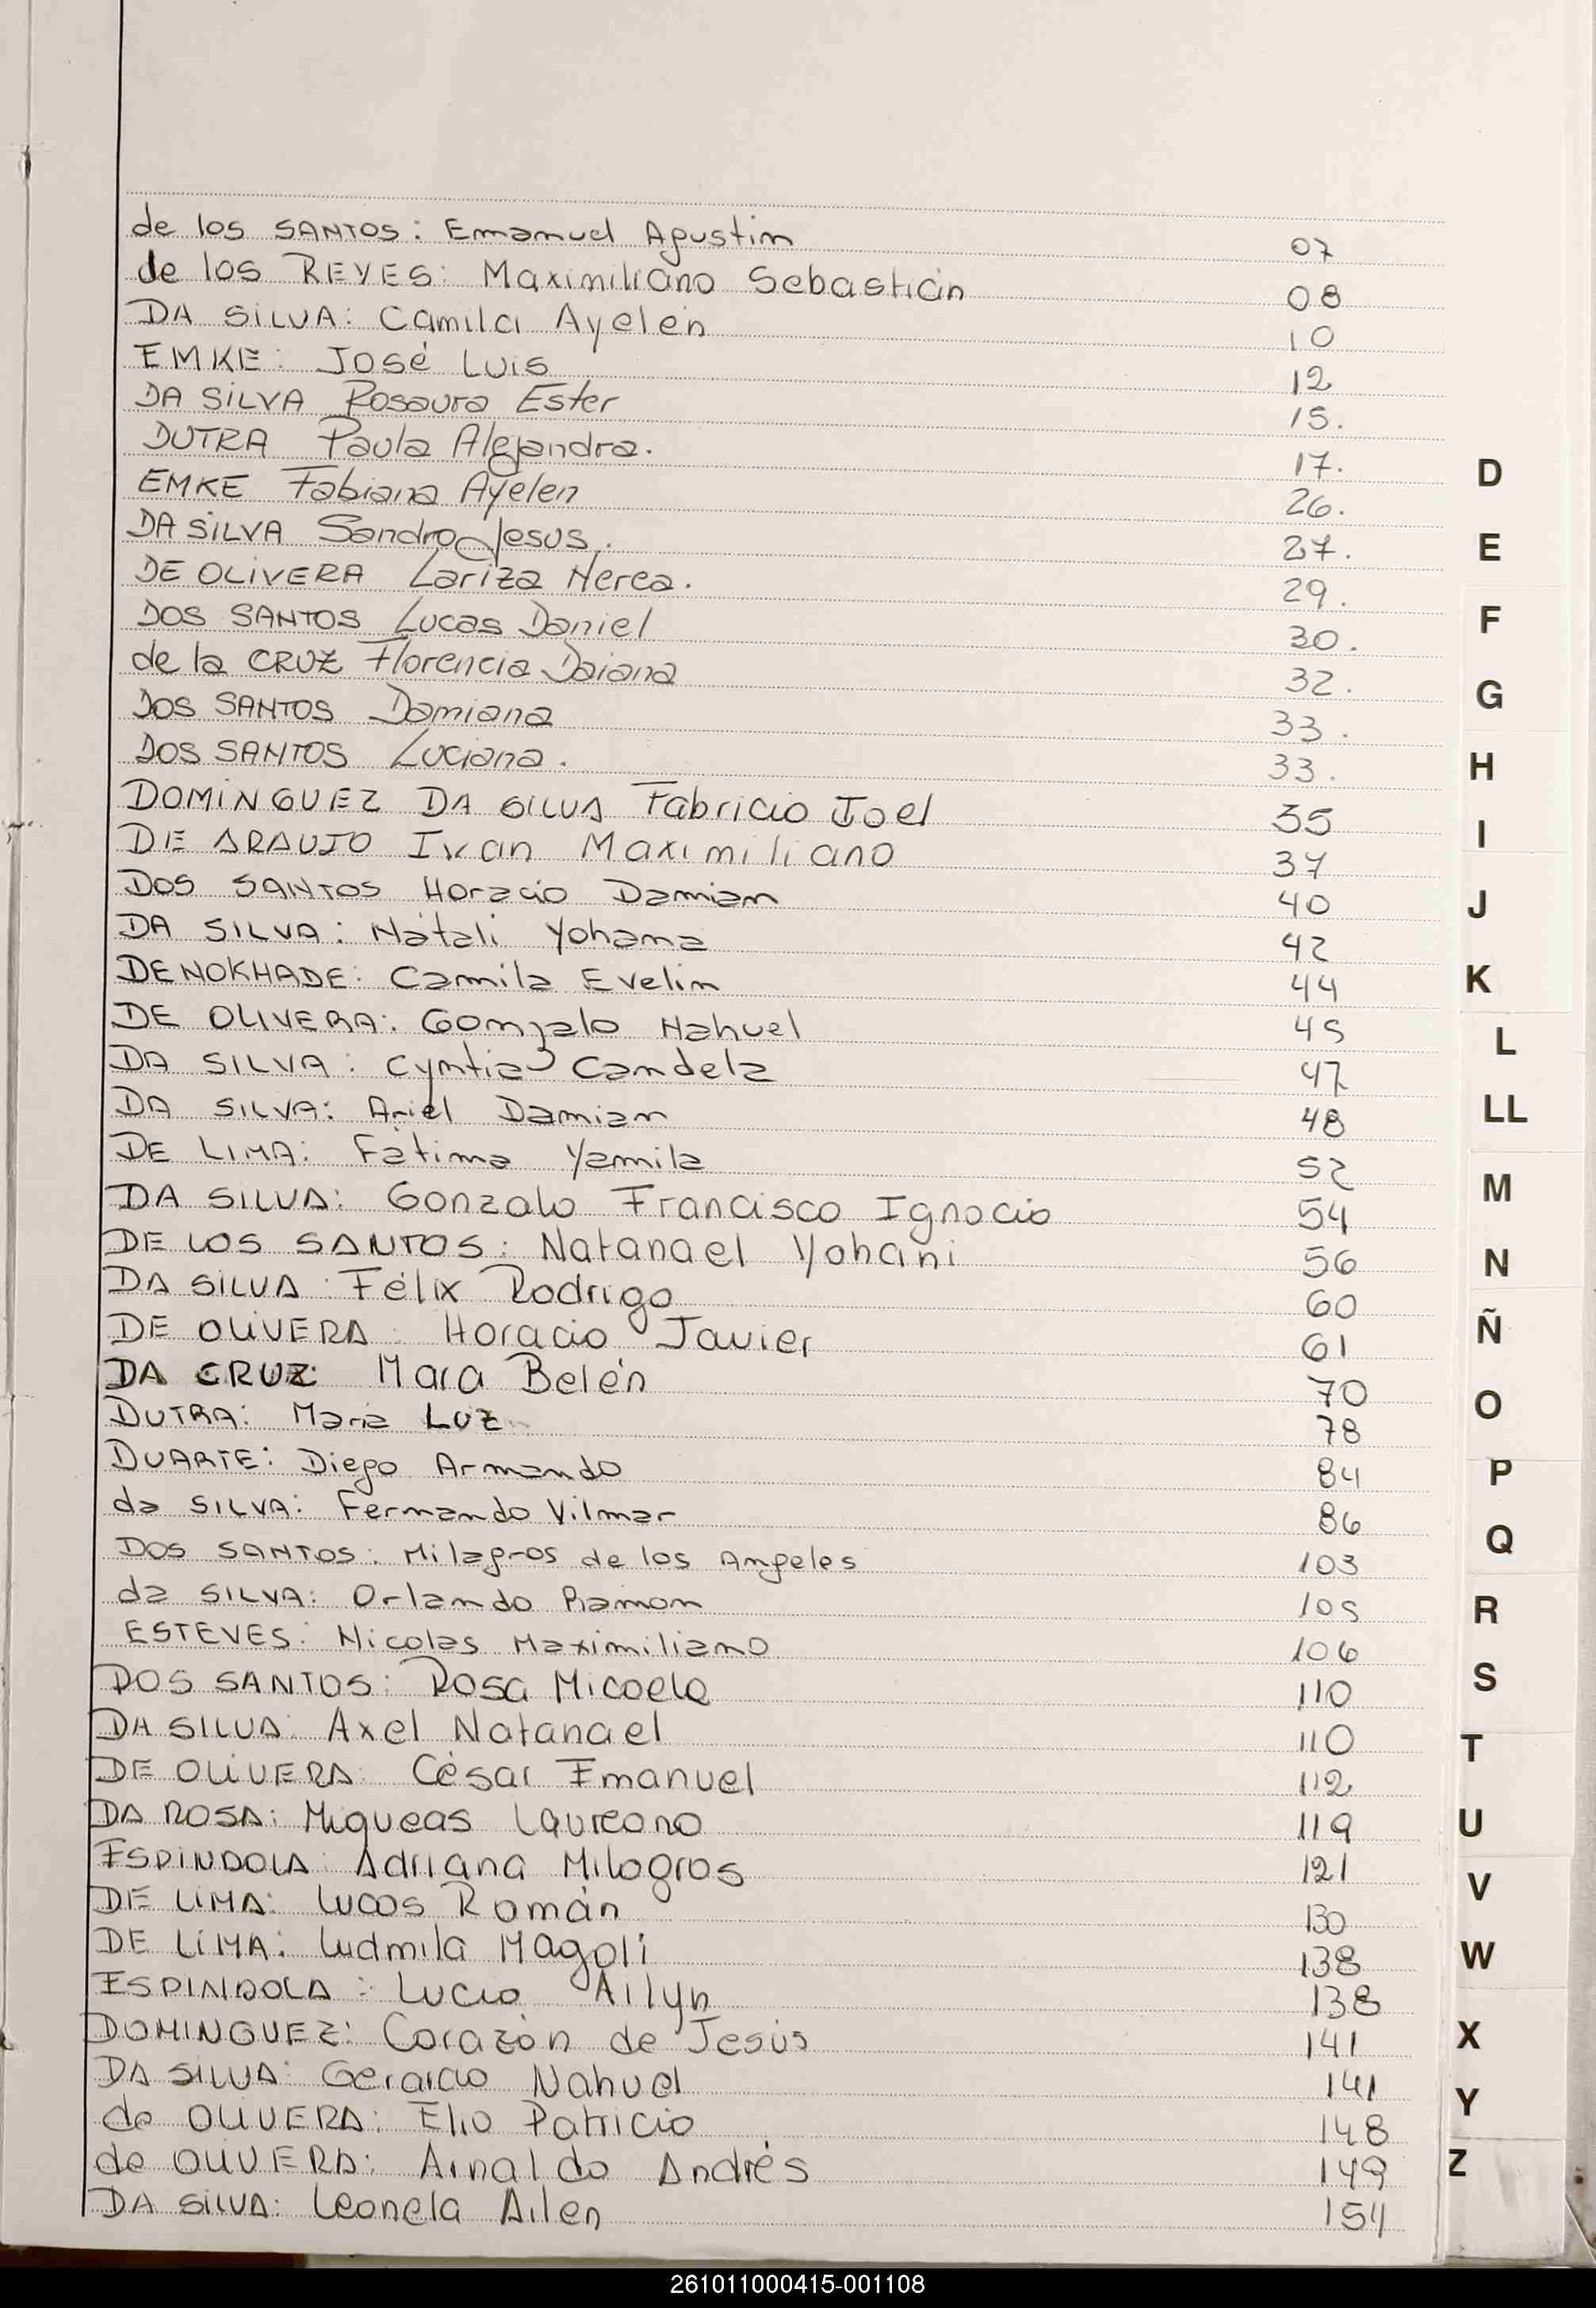 de los SANTOS: Emanuel Agustin 07
de los REYES: Maximiliano Sebastián 08
DA SILVA: Camila Ayelén 10
EMKE: José Luis 12
DA SILVA Rosaura Ester 15.
DUTRA Paula Alejandra. 17.
EMKE Fabiana Ayelen 26.
DA SILVA Sandro Jesus. 27.
DE OLIVERA Lariza Nerea. 29.
DOS SANTOS Lucas Daniel 30.
de la CRUZ Florencia Daiana 32.
DOS SANTOS Damiana 33.
DOS SANTOS Luciana. 33.
DOMINGUEZ DA SILVA Fabricio Joel 35
DE ARAUJO Ivan Maximiliano 37
DOS SANTOS Horacio Damian 40
DA SILVA: Natali Yohana 42
DENOKHADE: Camila Evelin 44
DE OLIVERA: Gonzalo Nahuel 45
DA SILVA: Cyntia Candela 47
DA SILVA: Ariel Damian 48
DE LIMA: Fatima Yamila 52
DA SILVA: Gonzalo Francisco Ignacio 54
DE LOS SANTOS: Natanael Yohani 56
DA SILVA: Félix Rodrigo 60
DE OLIVERA: Horacio Javier 61
DA CRUZ: Mara Belén 70
DUTRA: Maria LUZ 78
DUARTE: Diego Armando 84
da SILVA: Fernando Vilmar 86
DOS SANTOS: Milagros de los Angeles 103
da SILVA: Orlando Ramon 105
ESTEVES: Nicolas Maximiliano 106
DOS SANTOS: Rosa Micaela 110
DA SILVA: Axel Natanael 110
DE OLIVERA: César Emanuel 112
DA ROSA: Miqueas Laureano 119
ESPINDOLA: Adriana Milagros 121
DE LIMA: Lucas Román 130
DE LIMA: Ludmila Magali 138
ESPINDOLA: Lucia Ailyn 138
DOMINGUEZ: Corazón de Jesús 141
DA SILVA: Gerardo Nahuel 141
de OLIVERA: Elio Patricio 148
de OLIVERA: Arnaldo Andrés 149
DA SILVA: Leonela Ailen 154
D
E
F
G
H
I
J
K
L
LL
M
N
Ñ
O
P
Q
R
S
T
U
V
W
X
Y
Z
261011000415-001108